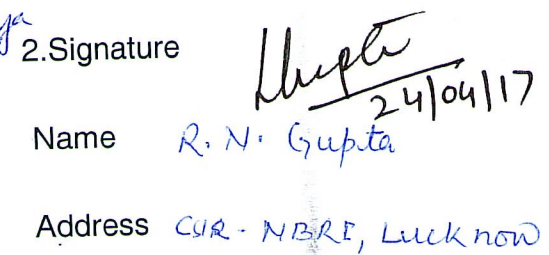 2.Signature
24/04/17
Name R. N. Gupta
Address CSIR - NBRI, Lucknow